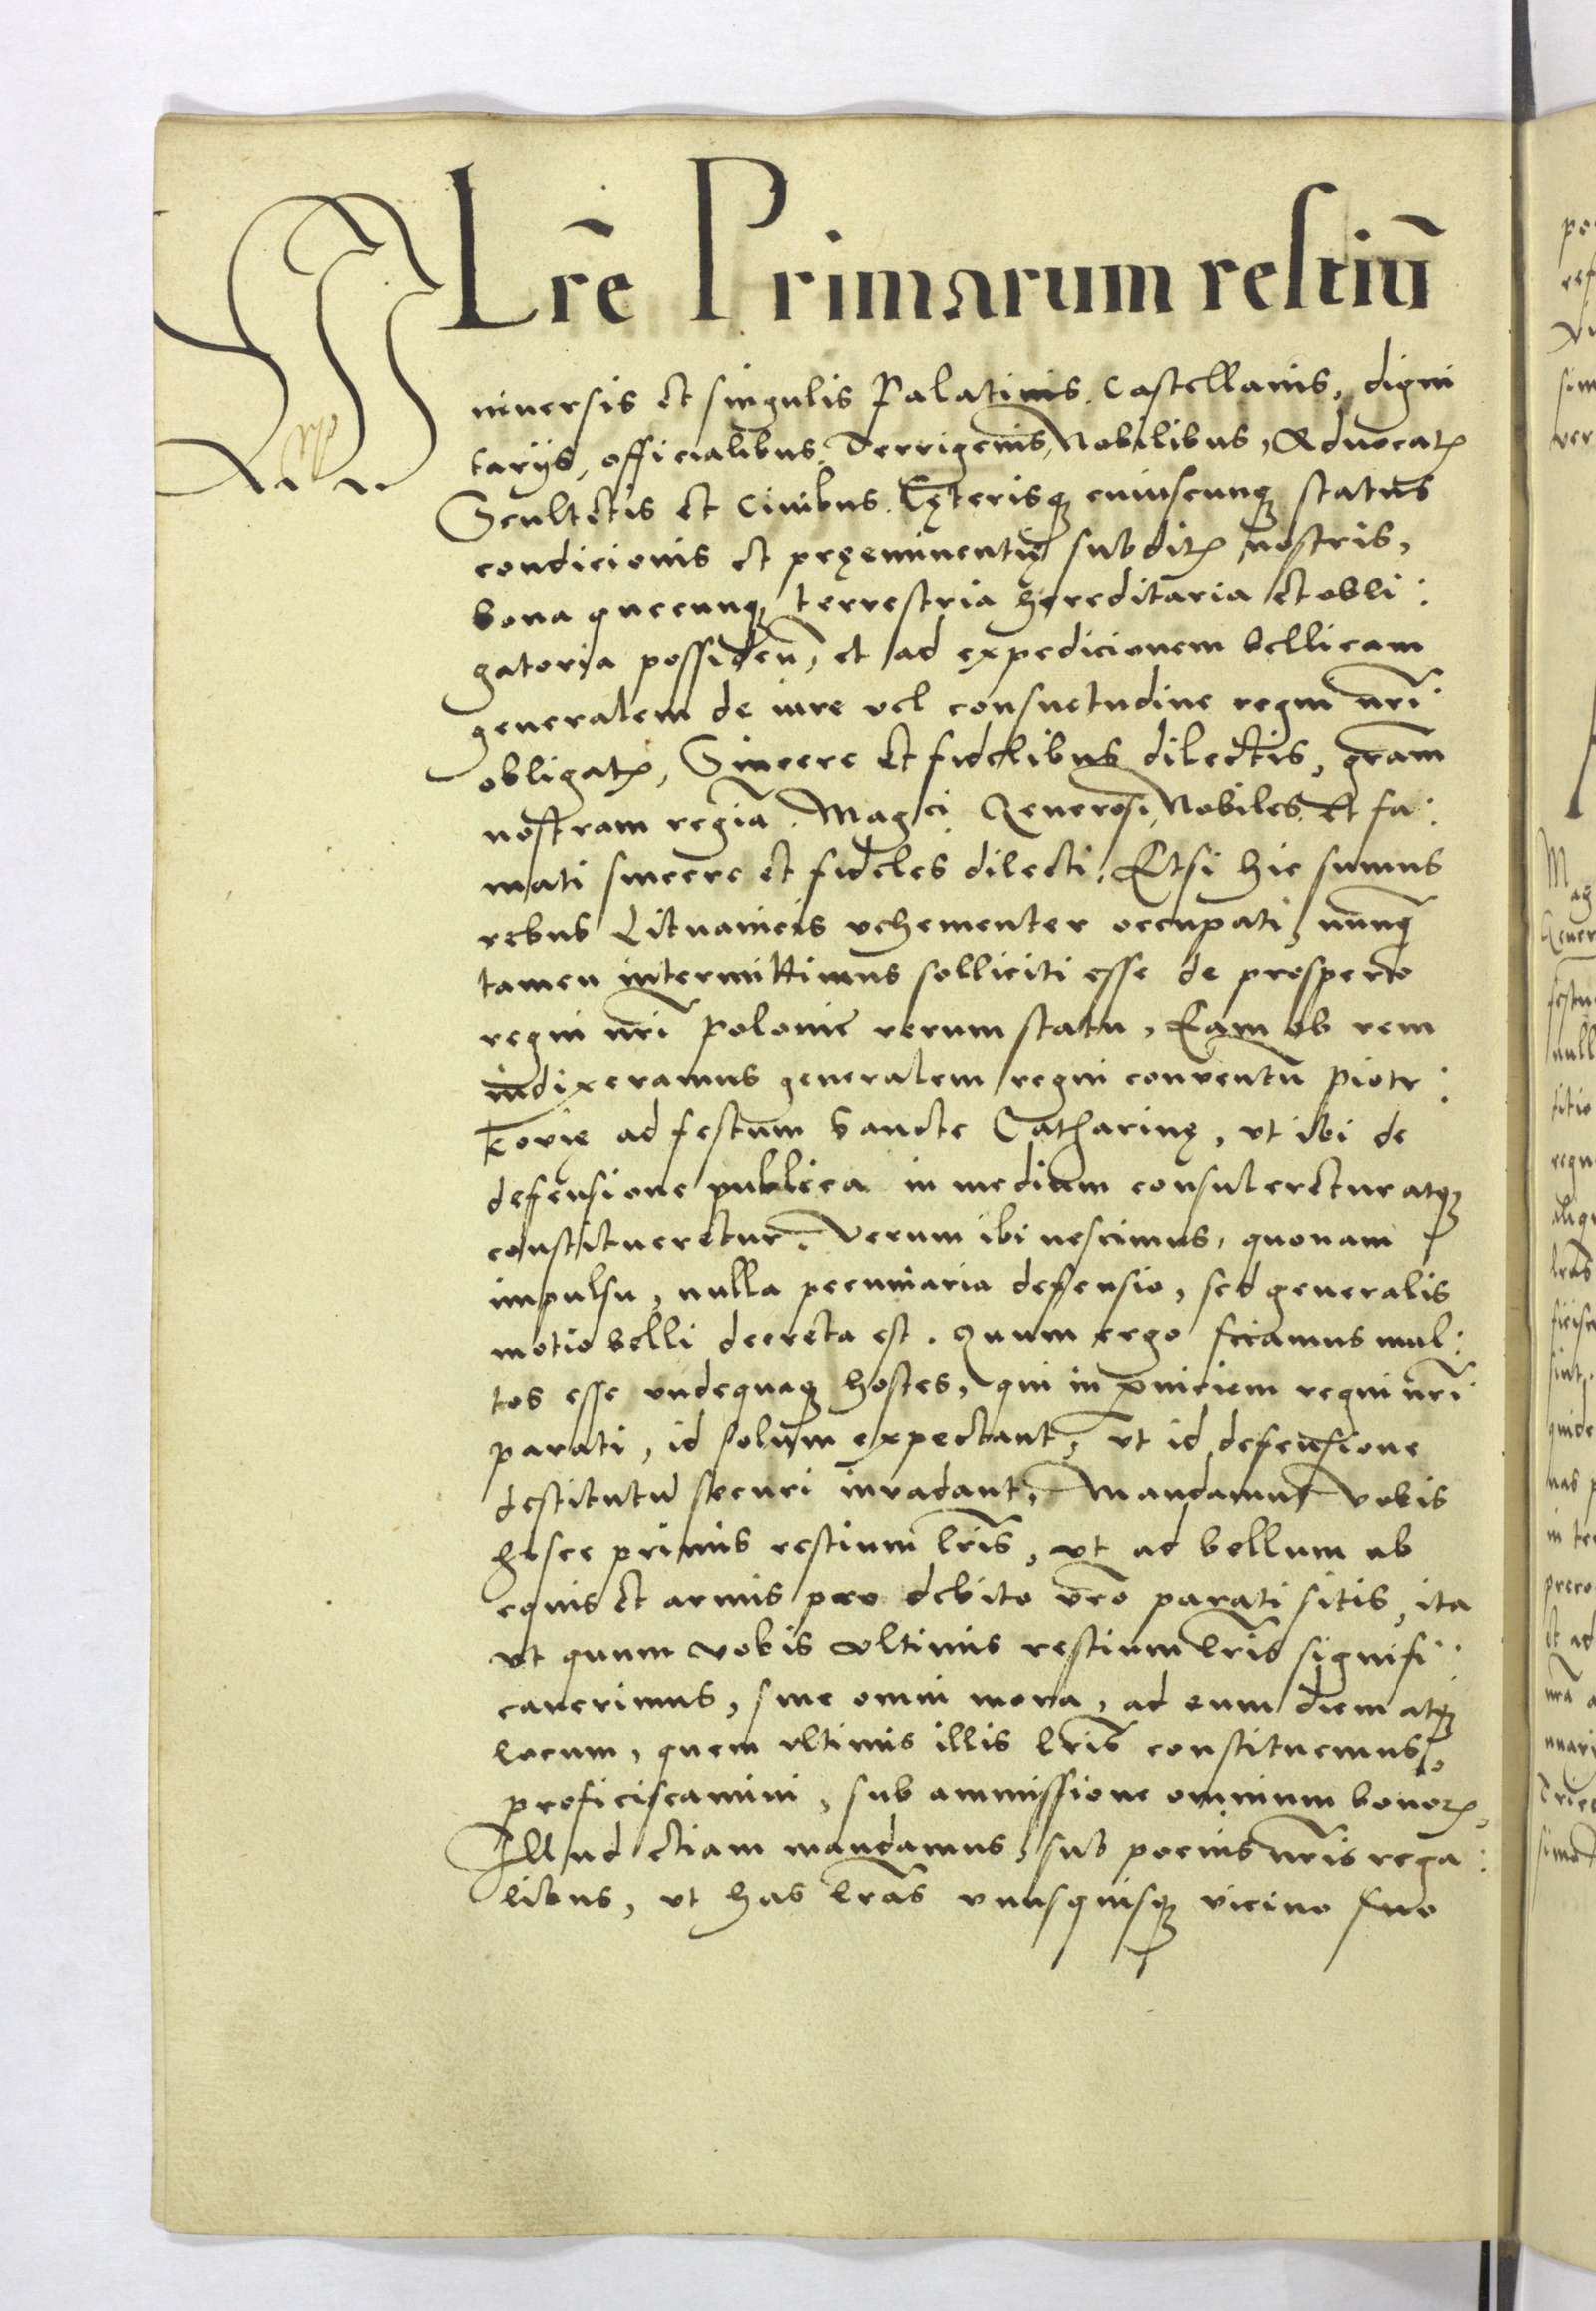 Lrē Primarum restiū
Vniuersis et singulis Palatinis. Castellanis, digni
tarijs, officialibus, Terrigenis, Nobilibus, Aduocatꝭ
Scultetis et Ciuibus. Cęterisqꝫ cuiuscunqꝫ status
condicionis et pręeminentię subditꝭ nostris,
bona quecunqꝫ terrestria hereditaria et obli:
gatoria possiden̄, et ad expedicionem bellicam
generalem de iure vel consuetudine regni nr̄i
obligatꝭ, Sincere et fidelibus dilectis, gr̄am
nostram regiā. Magci Generosi, Nobiles Et fa:
mati sincere et fideles dilecti. Etsi hic sumus
rebus Lituanicis vehementer occupati, nunqꝫ
tamen intermittimus solliciti esse de prospero
regni nr̄i Polonie rerum statu, Eam ob rem
indixeramus generalem regni conventū Piotr:
kovię ad festum Sancte Catharinę, vt ibi de
defensione publica in medium consuleretur atqꝫ
constitueretur. Verum ibi nescimus, quonam
impulsu, nulla pecuniaria defensio, sed generalis
motio belli decreta est. Quum ergo sciamus mul:
tos esse vndequaqꝫ hostes, qui in ꝑniciem regni nr̄i
parati, id solum expectant, vt id defensione
destitutū securi invadant, Mandamus vobis
hisce primis restium lr̄is, vt ad bellum ab
equis et armis pro debito vr̄o parati sitis, ita
vt quum vobis vltimis restium lr̄is signifi:
caverimus, sine omni mora, ad eum diem atqꝫ
locum, quem vltimis illis lr̄is constituemus,
proficiscamini, sub ammissione omnium bonorꝭ,
Illud etiam mandamus, sub poenis nr̄is rega:
libus, vt has lr̄as vnusquisqꝫ vicino suo